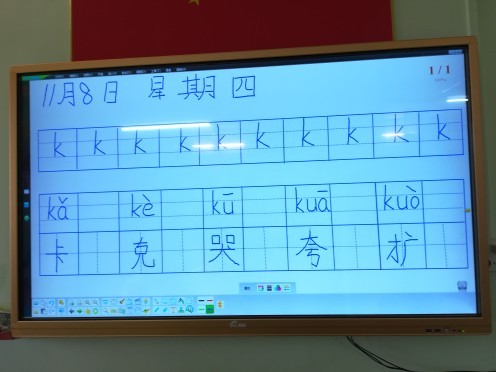 11月8日 星期四
1/1
k k k k k k k k k k
kǎ kè kū kuā kuò
卡 克 哭 夸 扩